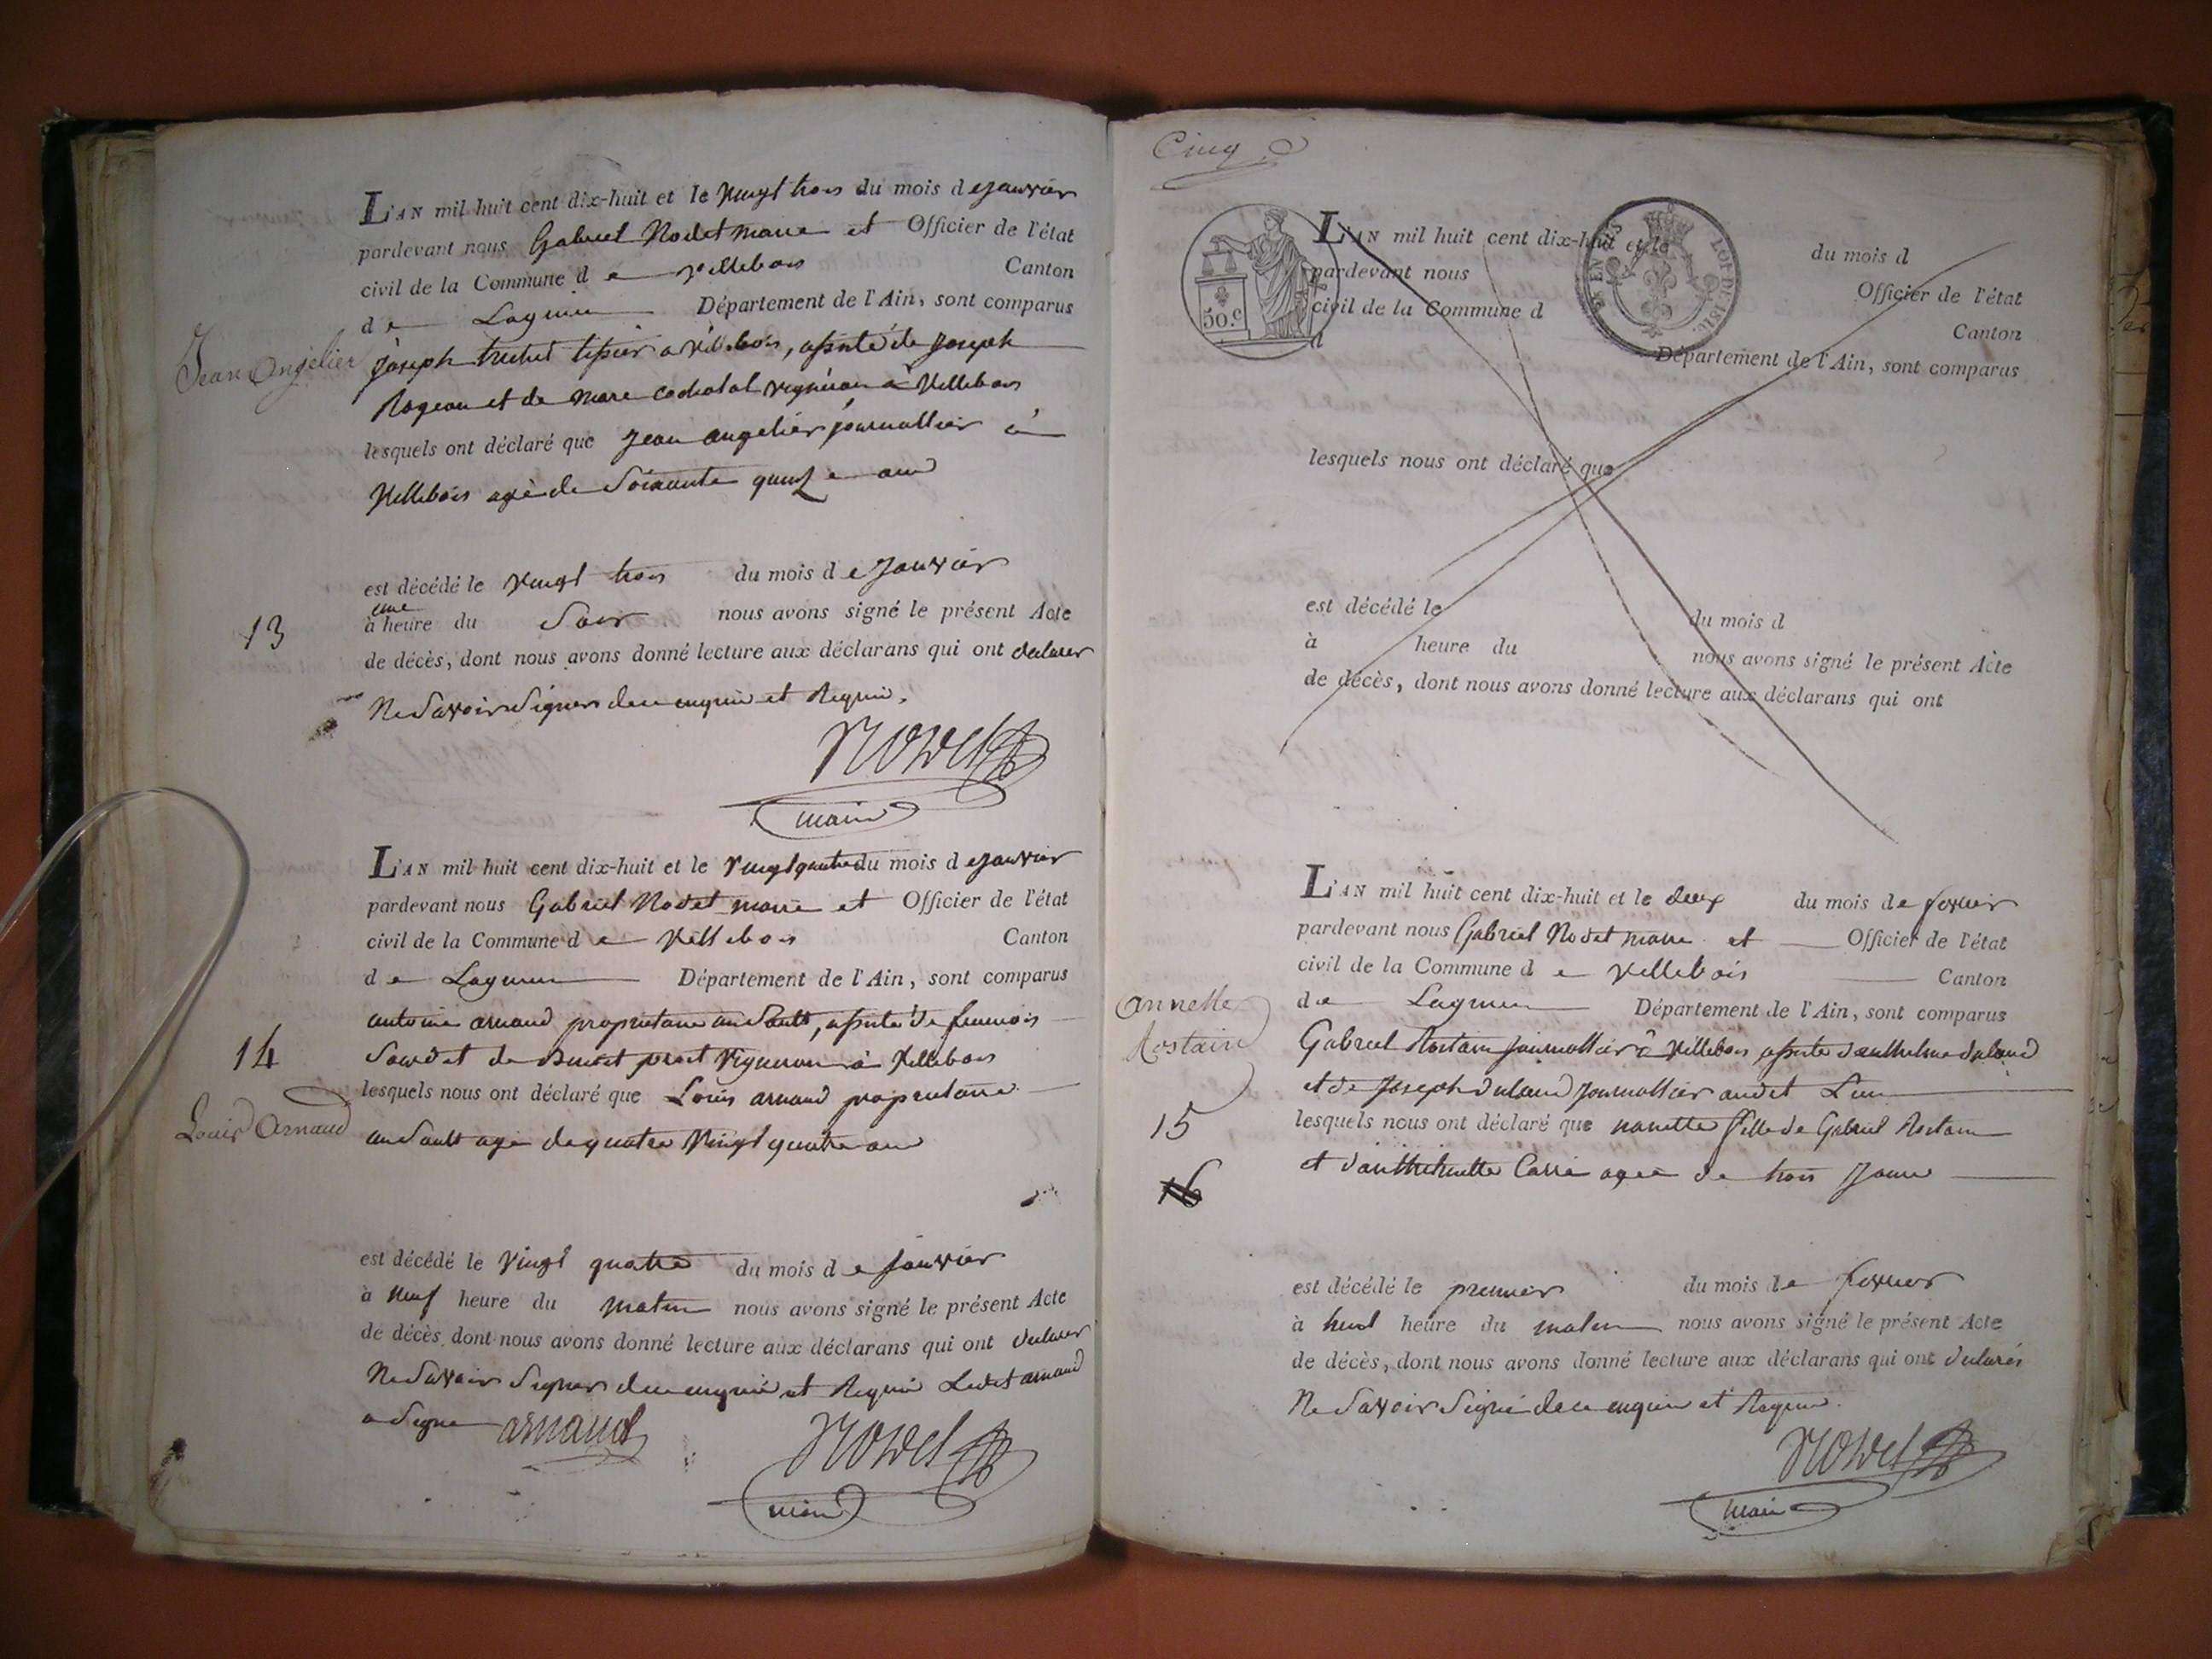 L'AN mil huit cent dix-huit et le vingt trois du mois de janvier
pardevant nous Gabriel Nodet maire et Officier de l'état
civil de la Commune de villebois Canton
de Lagnieu Département de l'Ain, sont comparus
Jean Angelier
joseph tissier a villebois, assisté de joseph
et de marc vigneron à villebois
lesquels ont déclaré que jean angelier journallier à
villebois agé de soixante quinze ans
est décédé le vingt trois du mois de janvier
une
à heure du soir nous avons signé le présent Acte
13
de décès, dont nous avons donné lecture aux déclarans qui ont declarer
ne savoir signer de ce enquis et requis.
Nodet
maire
L'AN mil huit cent dix-huit et le vingt quatre du mois de janvier
pardevant nous Gabriel Nodet maire et Officier de l'état
civil de la Commune de villebois Canton
de Lagnieu Département de l'Ain, sont comparus
antoine arnaud propriétaire au Sault, assisté de francois
14
et de vigneron à villebois
lesquels nous ont déclaré que Louis arnaud propriétaire
Louis Arnaud
au Sault agé de quatre vingt quatre ans
est décédé le vingt quatre du mois de janvier
à neuf heure du matin nous avons signé le présent Acte
de décès, dont nous avons donné lecture aux déclarans qui ont declarer
ne savoir signer de ce enquis et requis Ledit arnaud
a signé arnaud
Nodet
maire
Cinq
50.c
L'AN mil huit cent dix-huit et le du mois d
pardevant nous Officier de l'état
civil de la Commune d Canton
d Département de l'Ain, sont comparus
lesquels nous ont déclaré que
est décédé le du mois d
à heure du nous avons signé le présent Acte
de décès, dont nous avons donné lecture aux déclarans qui ont
L'AN mil huit cent dix-huit et le deux du mois de fevrier
pardevant nous Gabriel Nodet maire et Officier de l'état
civil de la Commune de villebois Canton
de Lagnieu Département de l'Ain, sont comparus
annette
Rostain
Gabriel Rostain journallier à villebois assisté d'anthelme
et de joseph journallier audit Lieu
15
lesquels nous ont déclaré que nanette fille de Gabriel Rostain
et Carré agée de trois jours
16
est décédé le premier du mois de fevrier
à huit heure du matin nous avons signé le présent Acte
de décès, dont nous avons donné lecture aux déclarans qui ont declarés
ne savoir signé de ce enquis et requis.
Nodet
maire